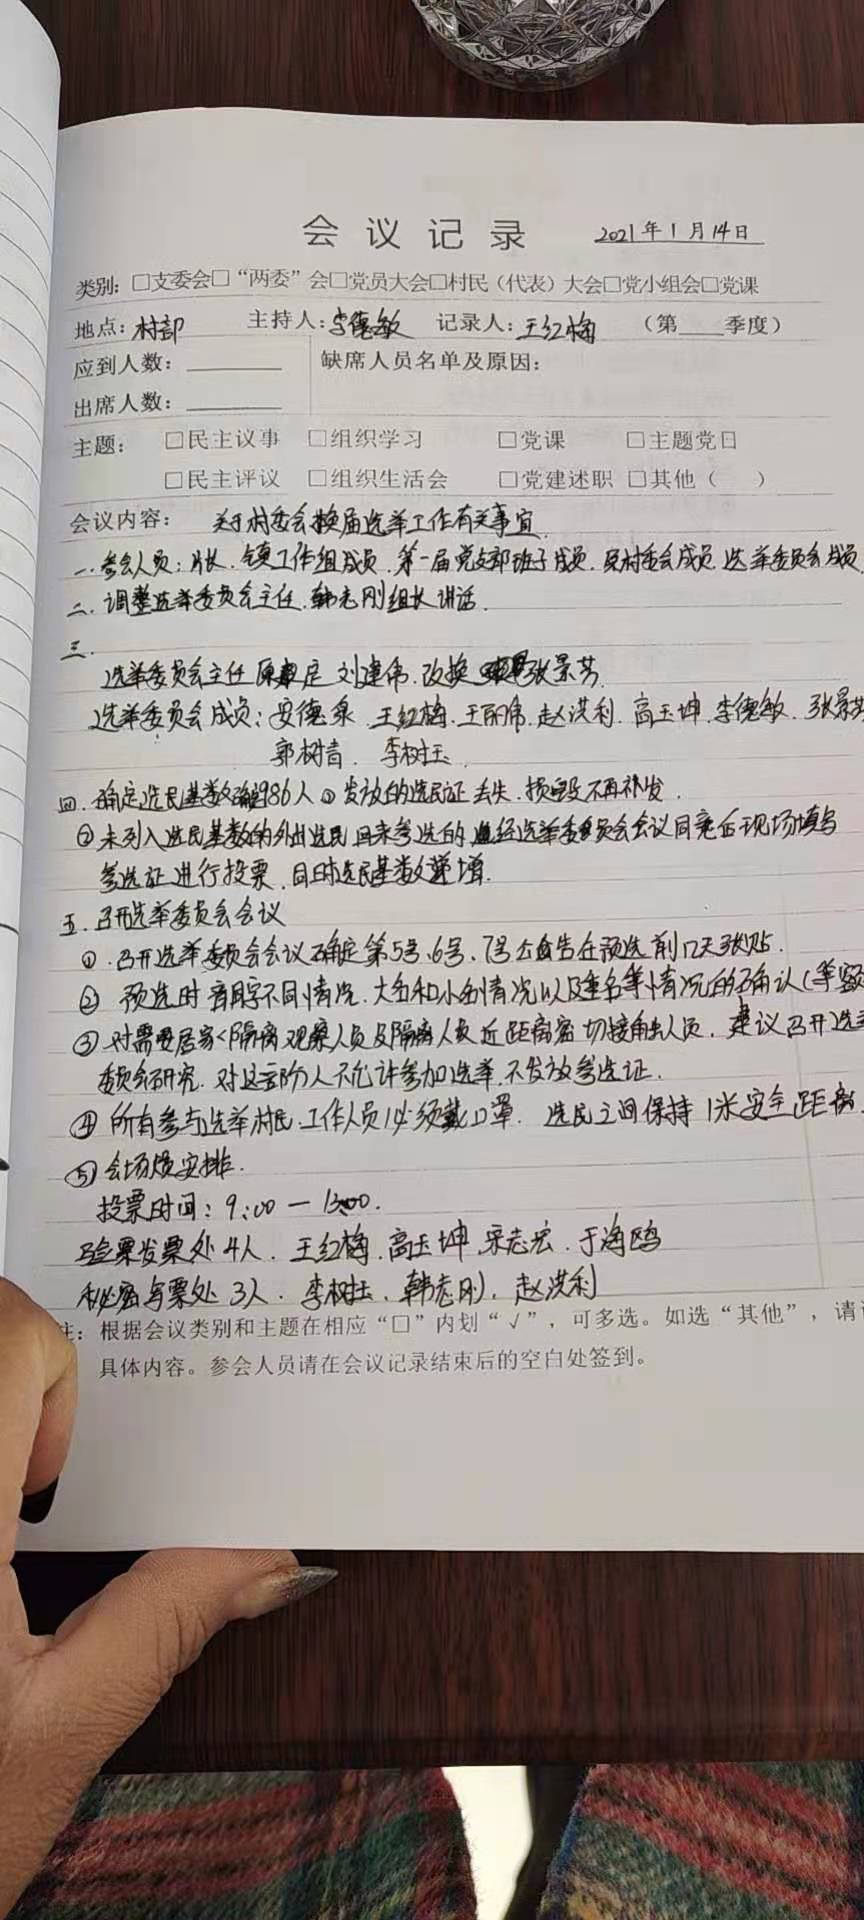 会议记录 2021年1月14日
类别：□支委会□“两委”会□党员大会□村民（代表）大会□党小组会□党课
地点：村部 主持人：李德敏 记录人：王红梅 （第 季度）
应到人数： 缺席人员名单及原因：
出席人数：
主题： □民主议事 □组织学习 □党课 □主题党日
□民主评议 □组织生活会 □党建述职 □其他（ ）
会议内容： 关于村委会换届选举工作有关事宜
一.参会人员：片长.镇工作组成员.第一届党支部班子成员.原村委会成员.选举委员会成员
二.调整选举委员会主任.韩志刚组长讲话.
三.
选举委员会主任原定刘建伟.改换张景芳.
选举委员会成员：安德泉.王红梅.王丽伟.赵洪利.高玉坤.李德敏.张景芳
郭树青.李树玉.
四.确定选民基数986人①发放的选民证丢失.损毁不再补发.
②未列入选民基数的外出选民回来参选的.经选举委员会会议同意后现场填写
参选证进行投票.同时选民基数递增.
五.召开选举委员会会议
①.召开选举委员会会议确定第5号、6号、7号公告在预选前12天张贴.
② 预选时音同字不同情况.大名和小名情况以及重名等情况的确认（等
③对需要居家隔离观察人员及隔离人员近距离密切接触人员.建议召开选举
委员会研究.对这部分人不允许参加选举.不发放参选证.
④所有参与选举村民.工作人员必须戴口罩.选民之间保持1米安全距离.
⑤会场安排.
投票时间：9:00—13:00.
验票发票处4人.王红梅.高玉坤.宋志宏.于海鸥
秘密写票处3人.李树玉.韩志刚.赵洪利
注：根据会议类别和主题在相应“□”内划“√”，可多选。如选“其他”，请
具体内容。参会人员请在会议记录结束后的空白处签到。